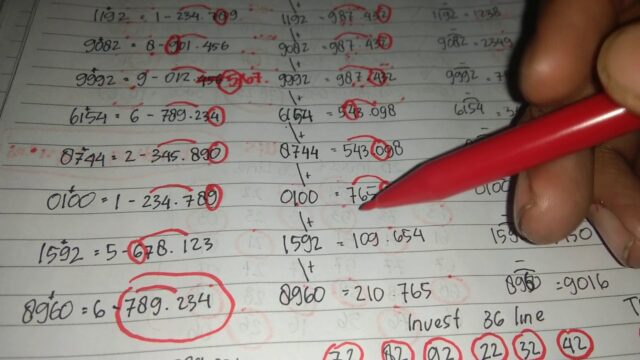 1192 = 1 - 234.789 1192 = 987.432 1192 = 1238
9082 = 8 - 901.456 9082 = 987.432 9082 = 2349
9992 = 9 - 012 567 9992 = 987.432 9992 =
6154 = 6 - 789.234 6154 = 543.098 6154 =
8744 = 2 - 345.890 8744 = 543.098
0100 = 1 - 234.789 0100 = 765
1592 = 5 - 678.123 1592 = 109.654
8960 = 6 - 789.234 8960 = 210.765 8960 = 9016
Invest 36 line
72 82 92 22 32 42